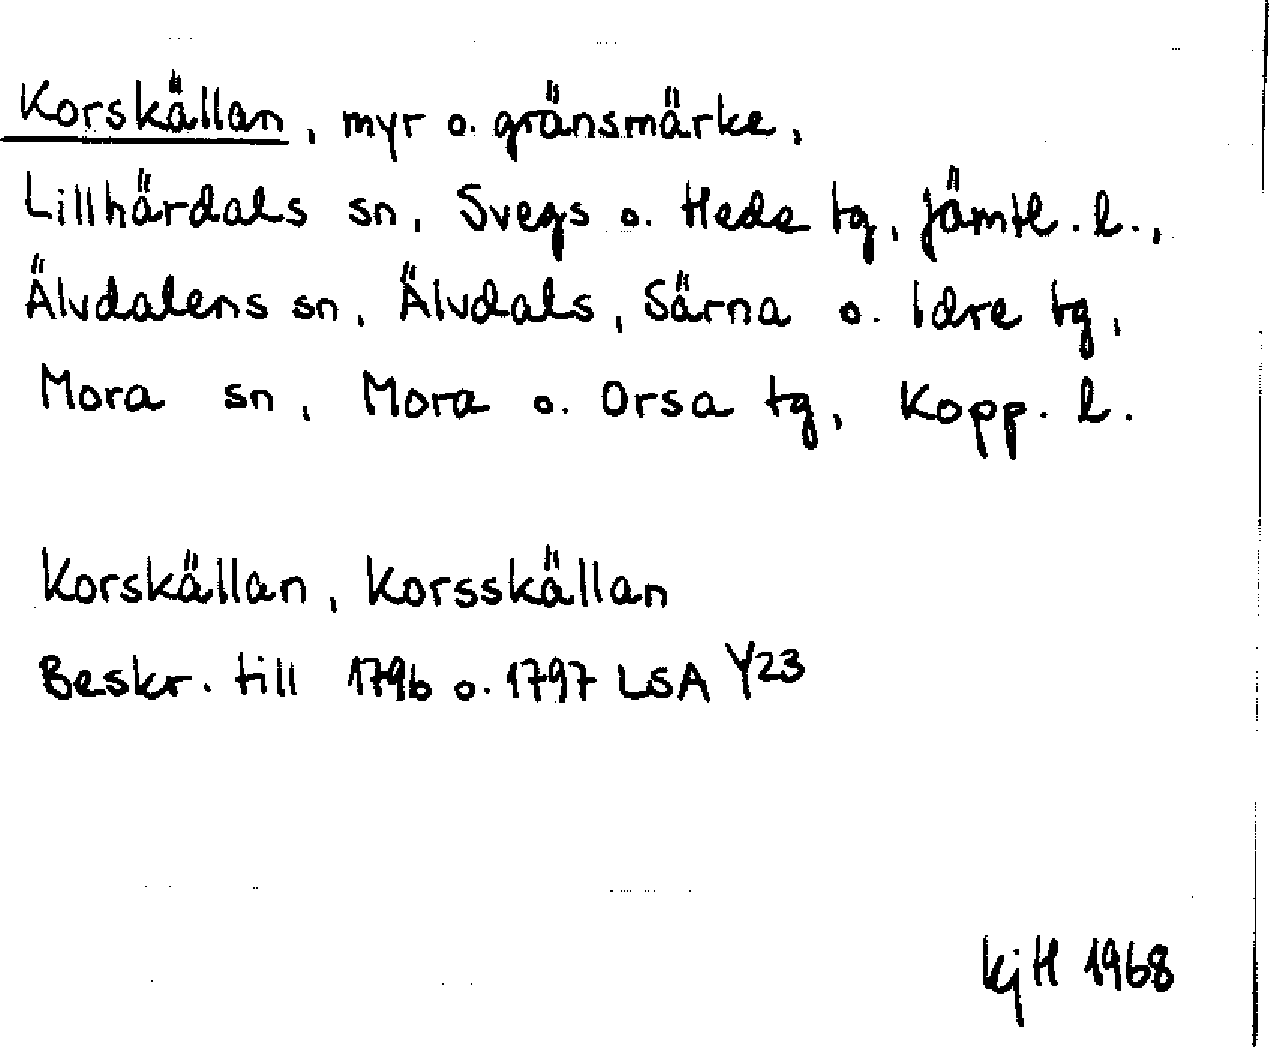 Korskällan, myr o. gränsmärke,
Lillhärdals sn, Svegs o. Hede tg, Jämtl. l.,
Älvdalens sn, Älvdals, Särna o. Idre tg,
Mora sn, Mora o. Orsa tg, Kopp. l.
Korskällan, Korsskällan
Beskr. till 1796 o. 1797 LSA Y23
kjH 1968